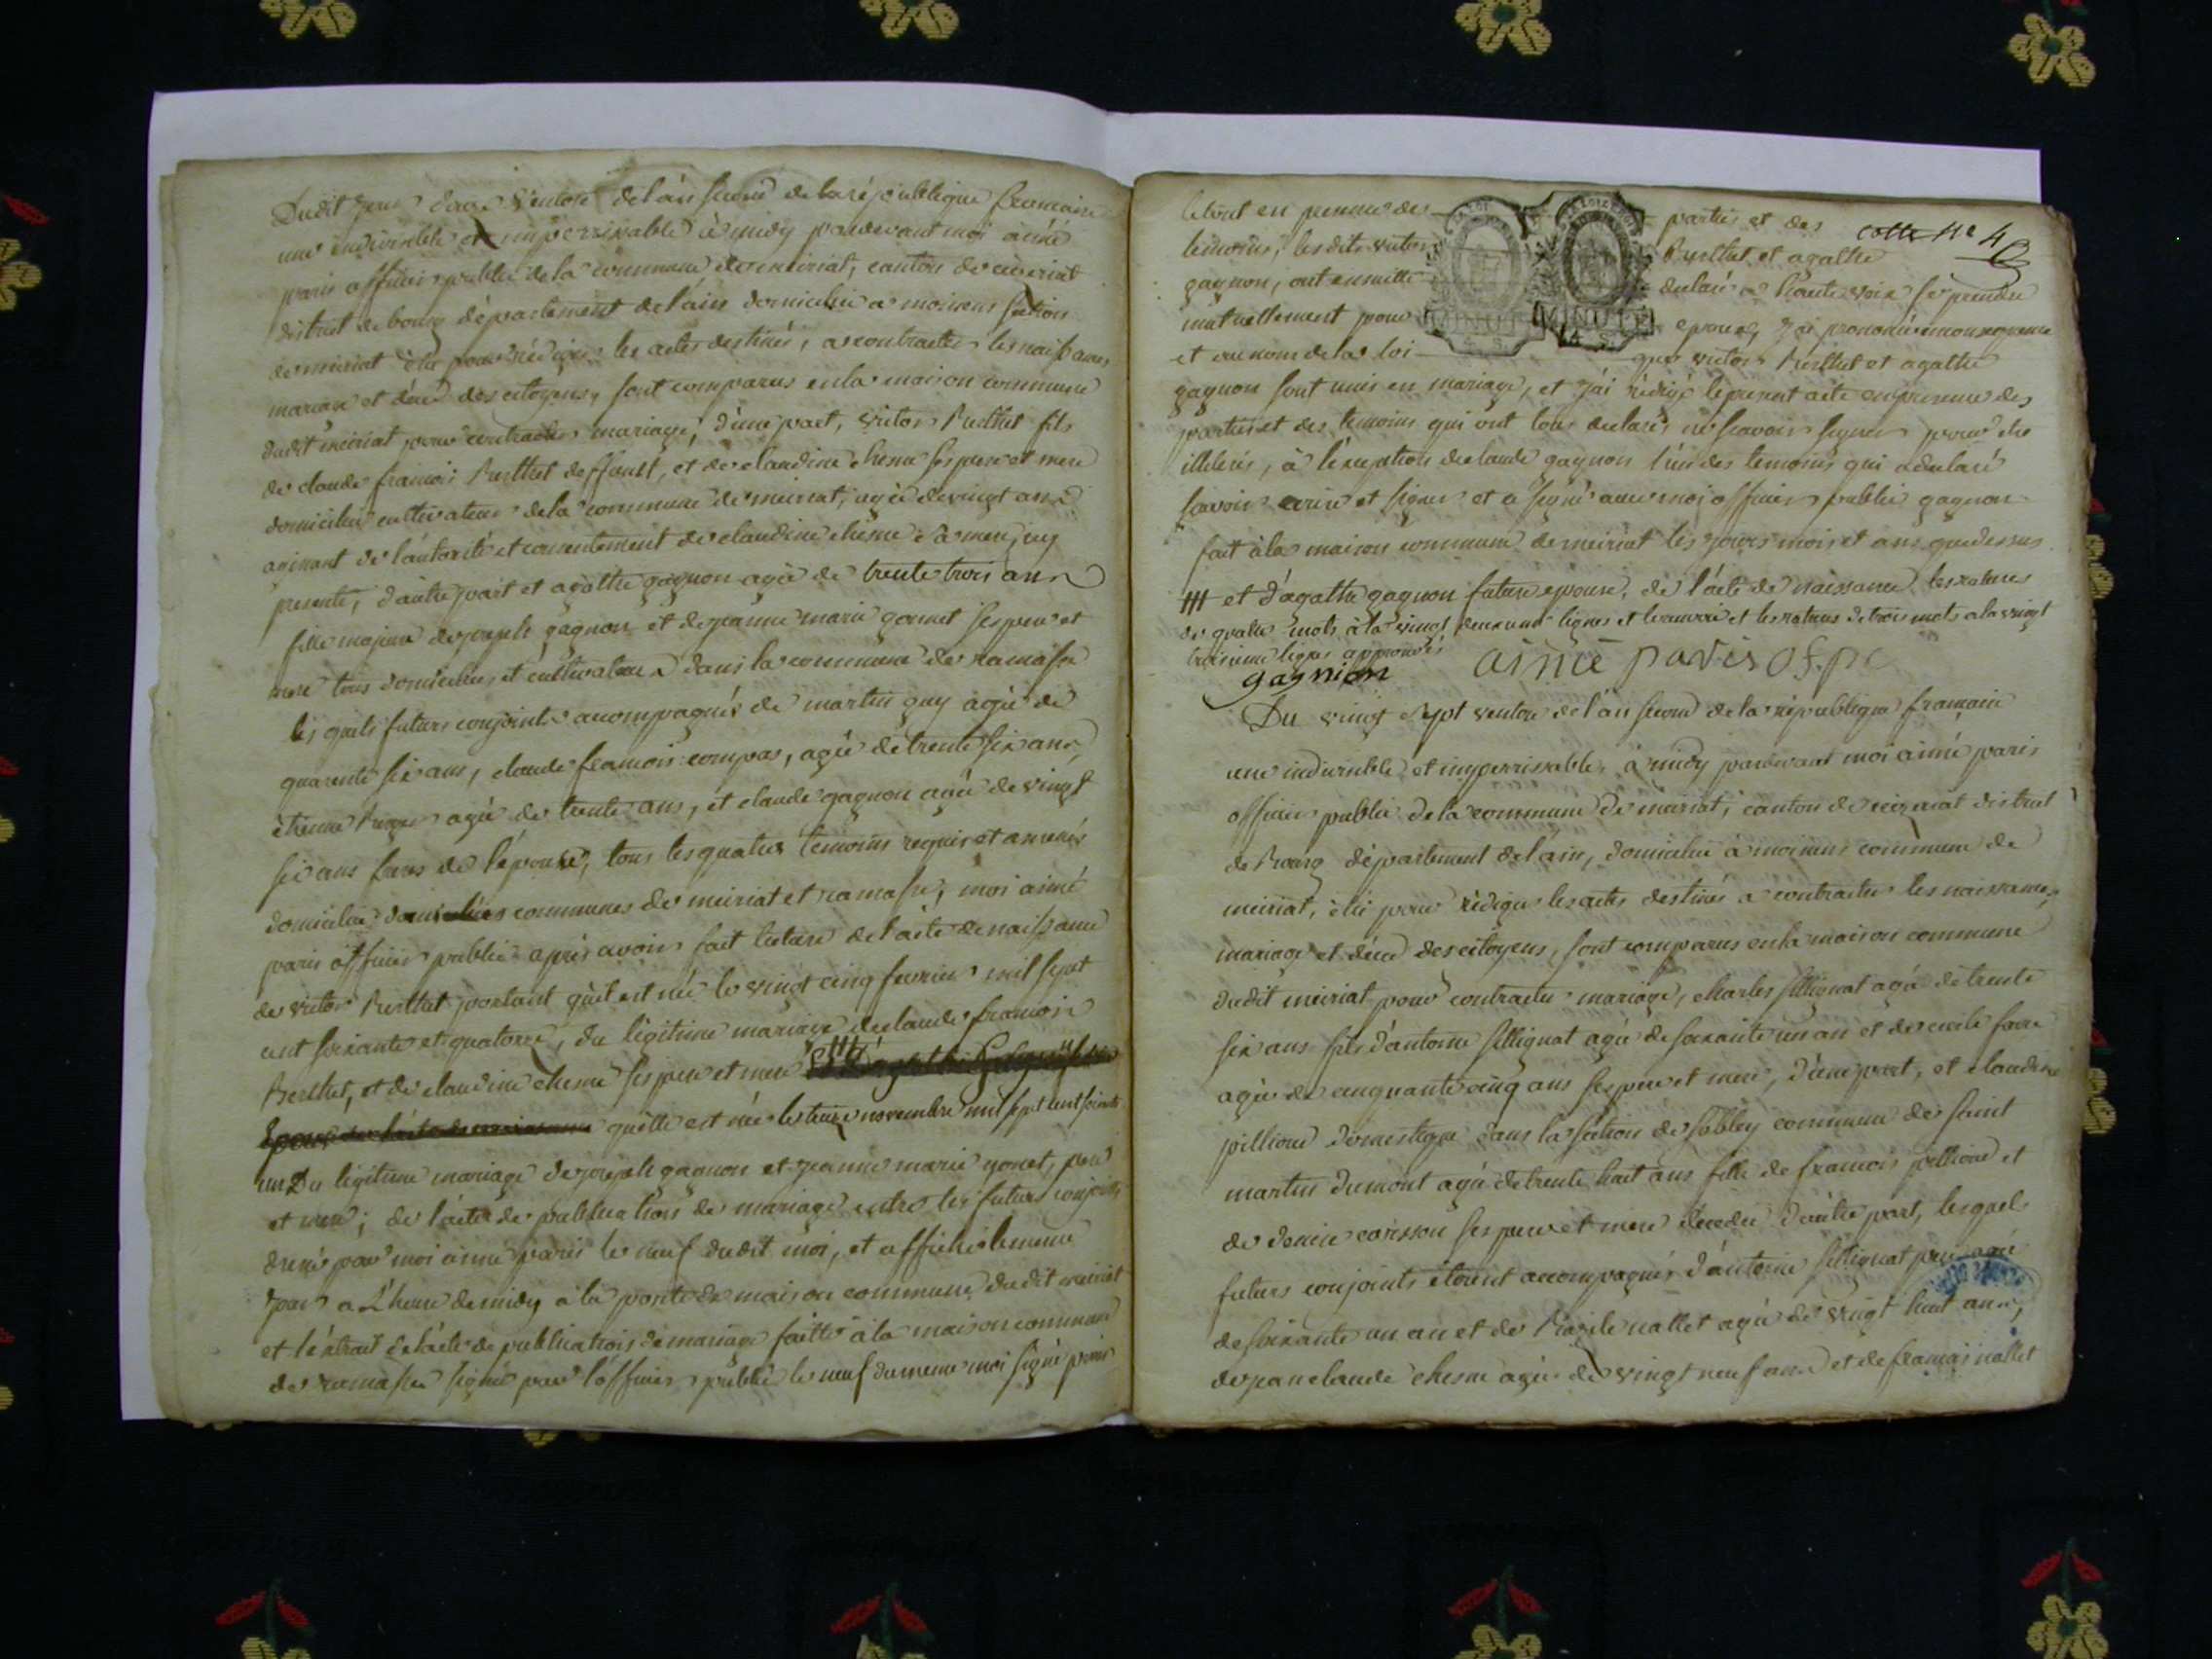 Dudit jour douze ventose de l'an second de la république francaise
une indivisible et imperrissable à midy pardevant moi aimé
paris officier public de la commune de meiriat, canton de ceizeriat
district de bourg département de l'ain domicilié a moinens section
de meiriat élu pour rédiger les actes destinés, a contracter les naissances,
mariage et décé des citoyens, sont comparus en la maison commune
dudit meiriat pour contracter mariage, d'une part, victor Berthet fils
de claude francois Berthet deffunt, et de claudine chesne ses pere et mere
domicilié cultivateur de la commune de meiriat, agée de vingt ans
agissant de l'autorité et consentement de claudine chesne sa mere, icy
presente, d'autre part et agathe gagnon agée de trente trois ans
fille majeure de joseph gagnon et de jeanne marie gonnet ses pere et
mere tous domiciliés et cultivateurs dans la commune de ramasse
les quels futurs conjoints accompagnés de martin guy agée de
quarente six ans, claude francois compas, agée de trente six ans,
étienne agée de trente ans, et claude gagnon agée de vingt
six ans freres de l'épouse, tous les quatres temoins requis et amenés
domicilié communes de meiriat et ramasse, moi aimé
paris officier public après avoir fait lecture de l'acte de naissance
de victor Berthet portant qu'il est née le vingt cinq fevrier mil sept
cent soixante et quatorze, du légitime mariage de claude francois
Berthet, et de claudine chesne ses pere et mere ///
qu'elle est née le treize novembre mil sept cent soixante
un du légitime mariage de joseph gagnon et jeanne marie gonet, pere
et mere; de l'acte de publications de mariage entre les futurs conjoints
dressé par moi aimé paris le neuf dudit moi, et affiché le meme
jour a L'heure de midy à la porte de maison commune dudit meiriat
et l'extrait de l'acte de publications de mariage faitte à la maison commune
de ramasse signé par l'officier public le neuf du meme moi signé
le tout en presence des parties et des cotte Ne 4
temoins, les dits victor Berthet et agathe
gagnon, ont ensuitte declaré a haute voix se prendre
mutuellement pour epoux, j'ai prononcé
et au nom de la loi que victor Berthet et agathe
gagnon sont unis en mariage, et j'ai rédigé le present acte en presence des
parties et des temoins qui ont tous declarés ne scavoir signer pour etre
illiterés, à l'exception de claude gagnon l'un des temoins qui a declaré
scavoir ecrire et signer et a signé avec moi officier public gagnon
fait à la maison commune de meiriat les jours mois et ans que dessus
/// et d'agathe gagnon future epouse, de l'acte de naissance les ratures
de quatre mots à la vingt deuxieme lignes et le renvoi et les ratures de trois mots a la vingt
troisieme lignes approuvés
gagnion aimé paris of. pc
Du vingt sept ventose de l'an second de la république francaise
une indivisible et imperrissable, à midy pardevant moi aimé paris
officier public de la commune de meiriat, canton de ceizeriat district
de Bourg département de l'ain, domicilié à moinens commune de
meiriat, élu pour rédiger les actes destinés a contracter les naissances,
mariage et décé des citoyens, sont comparus en la maison commune
dudit meiriat pour contracter mariage, charles sillignat agée de trente
six ans fils d'antoine sillignat agée de soixante un an et de favre
agée de cinquante cinq ans ses pere et mere, d'une part, et claudine
pillion domestique dans la section de sobley commune de saint
martin dumont agée de trente huit ans fille de francois pillion et
de denise carisson ses pere et mere décedée d'autre part, lesquel
futurs conjoints étoient accompagnés d'antoine sillignat pere agée
de soixante un an et de Bazile nallet agée de vingt huit ans,
de jean claude chesne agée de vingt neuf ans et de francois nallet